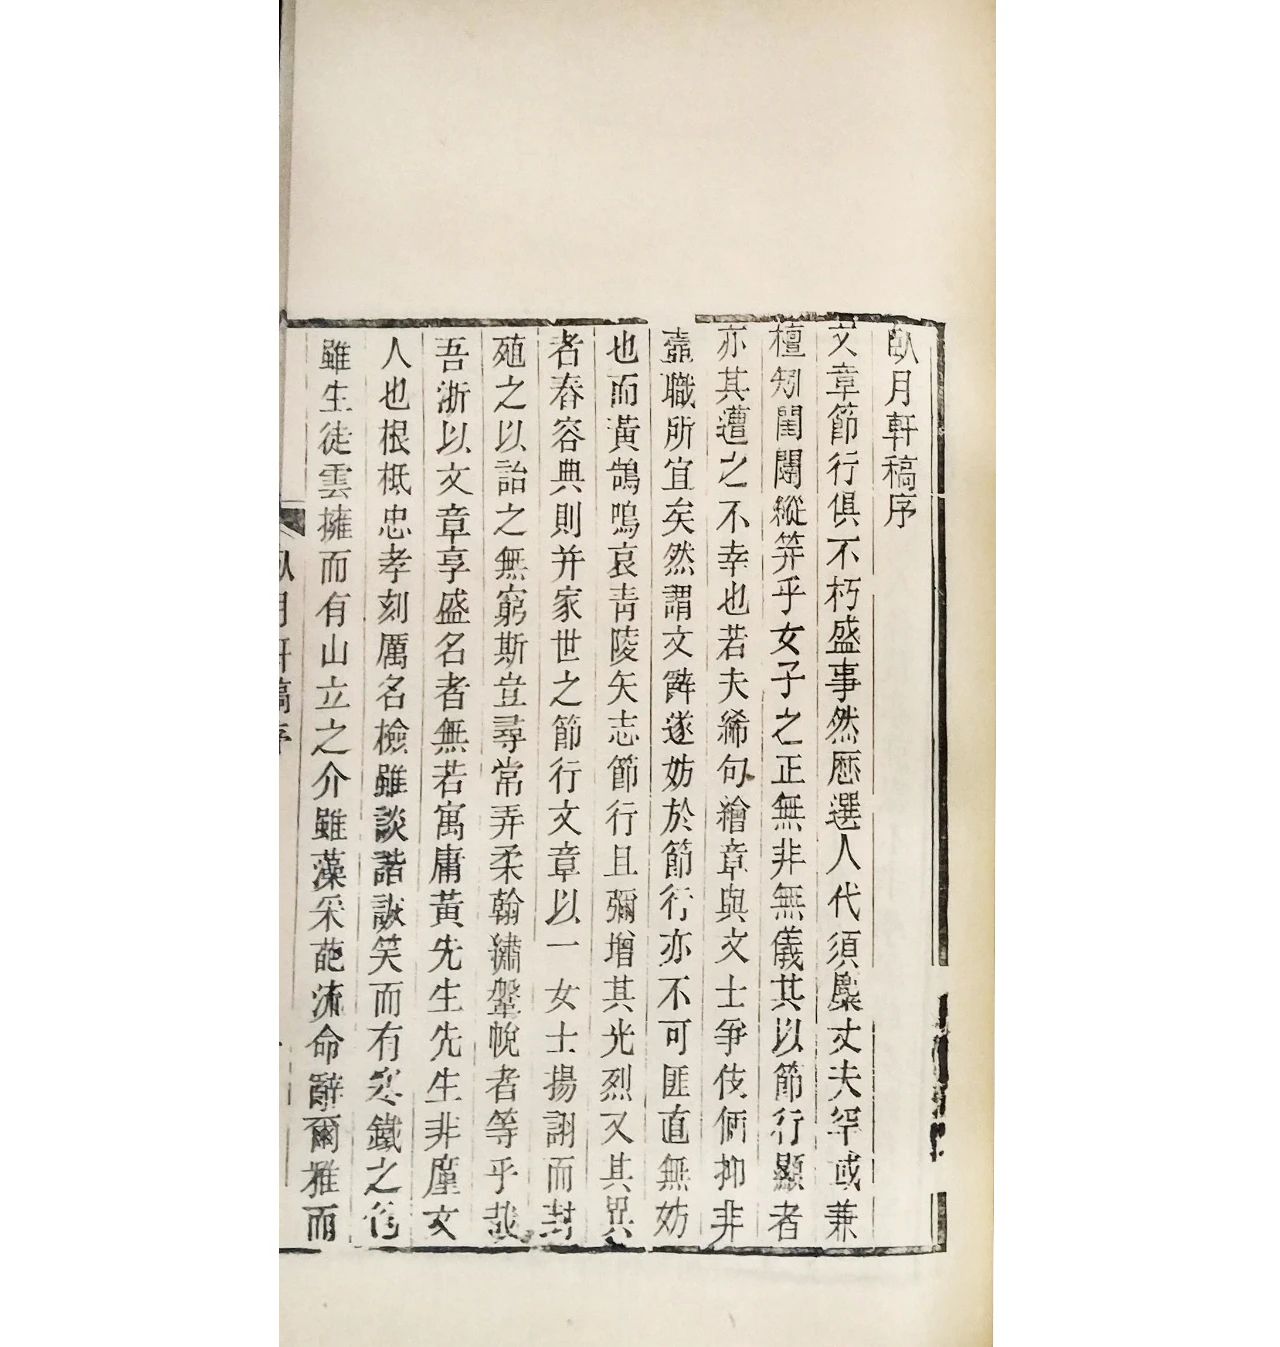 臥月軒稿序
文章節行俱不朽盛事然歷選人代須麋丈夫罕或兼
檀矧閨闥縱笄乎女子之正無非無儀其以節行顯者
亦其遭之不幸也若夫絺句繪章與文士爭伎倆抑非
壼職所宜矣然謂文辭遂妨於節行亦不可匪直無妨
也而黃鵠鳴哀青陵矢志節行且彌增其光烈又其異
者舂容典則并家世之節行文章以一女士揚詡而封
殖之以詒之無窮斯豈尋常弄柔翰繡鞶帨者等乎哉
吾浙以文章享盛名者無若寓庸黃先生先生非廑文
人也根柢忠孝刻厲名檢雖談諧詼笑而有寒鐵之色
雖生徒雲擁而有山立之介雖藻采葩流命辭爾雅而
臥月軒稿序